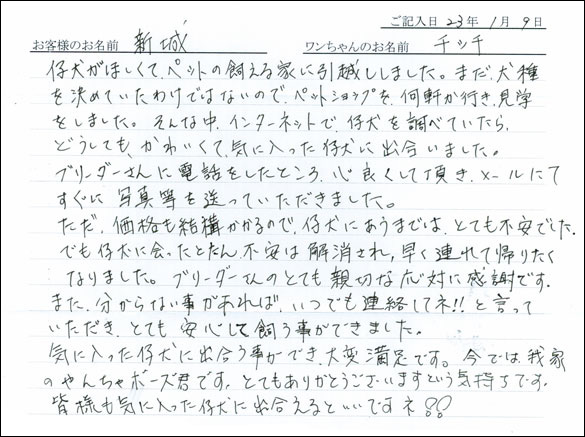 ご記入日 23年 1月 9日
お客様のお名前 新城 ワンちゃんのお名前 チッチ
仔犬がほしくて、ペットの飼える家に引越ししました。まだ犬種
を決めていたわけではないので、ペットショップを、何軒か行き、見学
をしました。そんな中、インターネットで、仔犬を調べていたら、
どうしても、かわいくて、気に入った仔犬に出合いました。
ブリーダーさんに電話をしたところ、心良くして頂き、メールにて
すぐに写真等を送っていただきました。
ただ、価格も結構かかるので、仔犬にあうまでは、とても不安でした。
でも仔犬に会ったとたん、不安は解消され、早く連れて帰りたく
なりました。ブリーダーさんのとても親切な応対に感謝です。
また、分からない事があれば、いつでも連絡してネ!!と言って
いただき、とても安心して飼う事ができました。
気に入った仔犬に出合う事ができ、大変満足です。今では、我家
のやんちゃボーズ君です。とてもありがとうございますという気持ちです。
皆様も気に入った仔犬に出合えるといいですネ!!